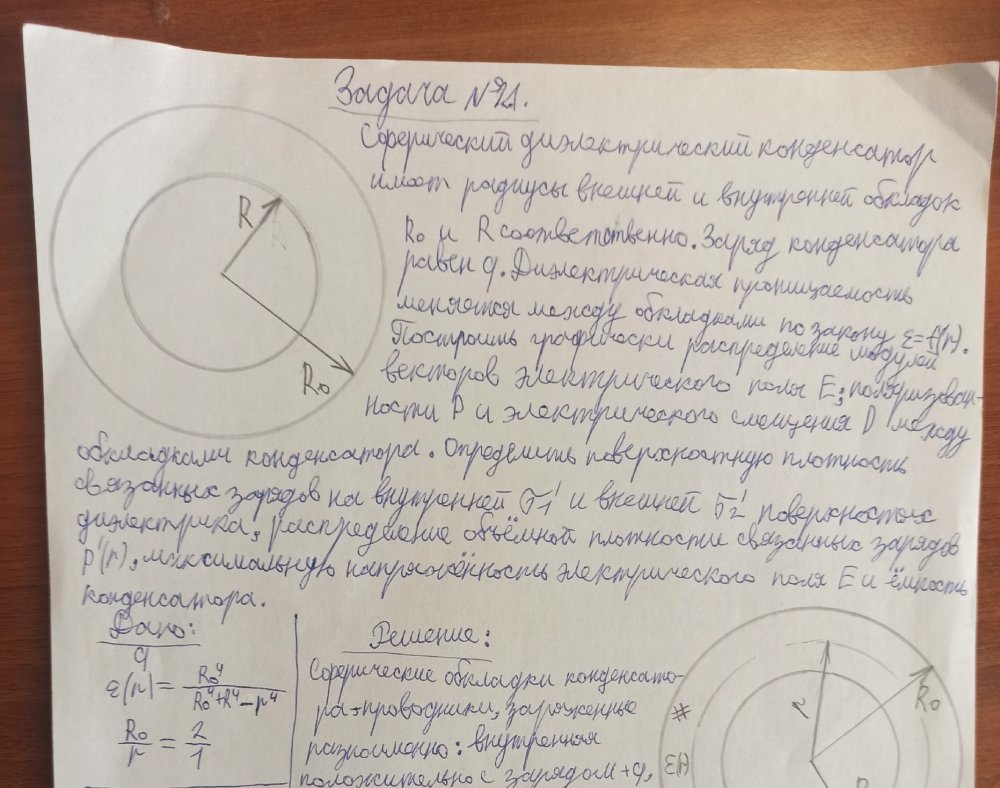 Задача №21.
Сферический диэлектрический конденсатор
имеет радиусы внешней и внутренней обкладок
R
R₀ и R соответственно. Заряд конденсатора
равен q. Диэлектрическая проницаемость
меняется между обкладками по закону ε=f(r).
Построить графически распределение модулей
R₀
векторов электрического поля E, поляризован-
ности P и электрического смещения D между
обкладками конденсатора. Определить поверхностную плотность
связанных зарядов на внутренней σ₁' и внешней σ₂' поверхностях
диэлектрика, распределение объёмной плотности связанных зарядов
ρ'(r), максимальную напряжённость электрического поля E и ёмкость
конденсатора.
Дано:
q
ε(r) = R₀⁴ / (R₀⁴+R⁴-r⁴)
R₀/r = 2/1
Решение:
Сферические обкладки конденсато-
ра-проводники, заряженные
разноимённо: внутренняя
положительно с зарядом +q,
r
R₀
#
ε(r)